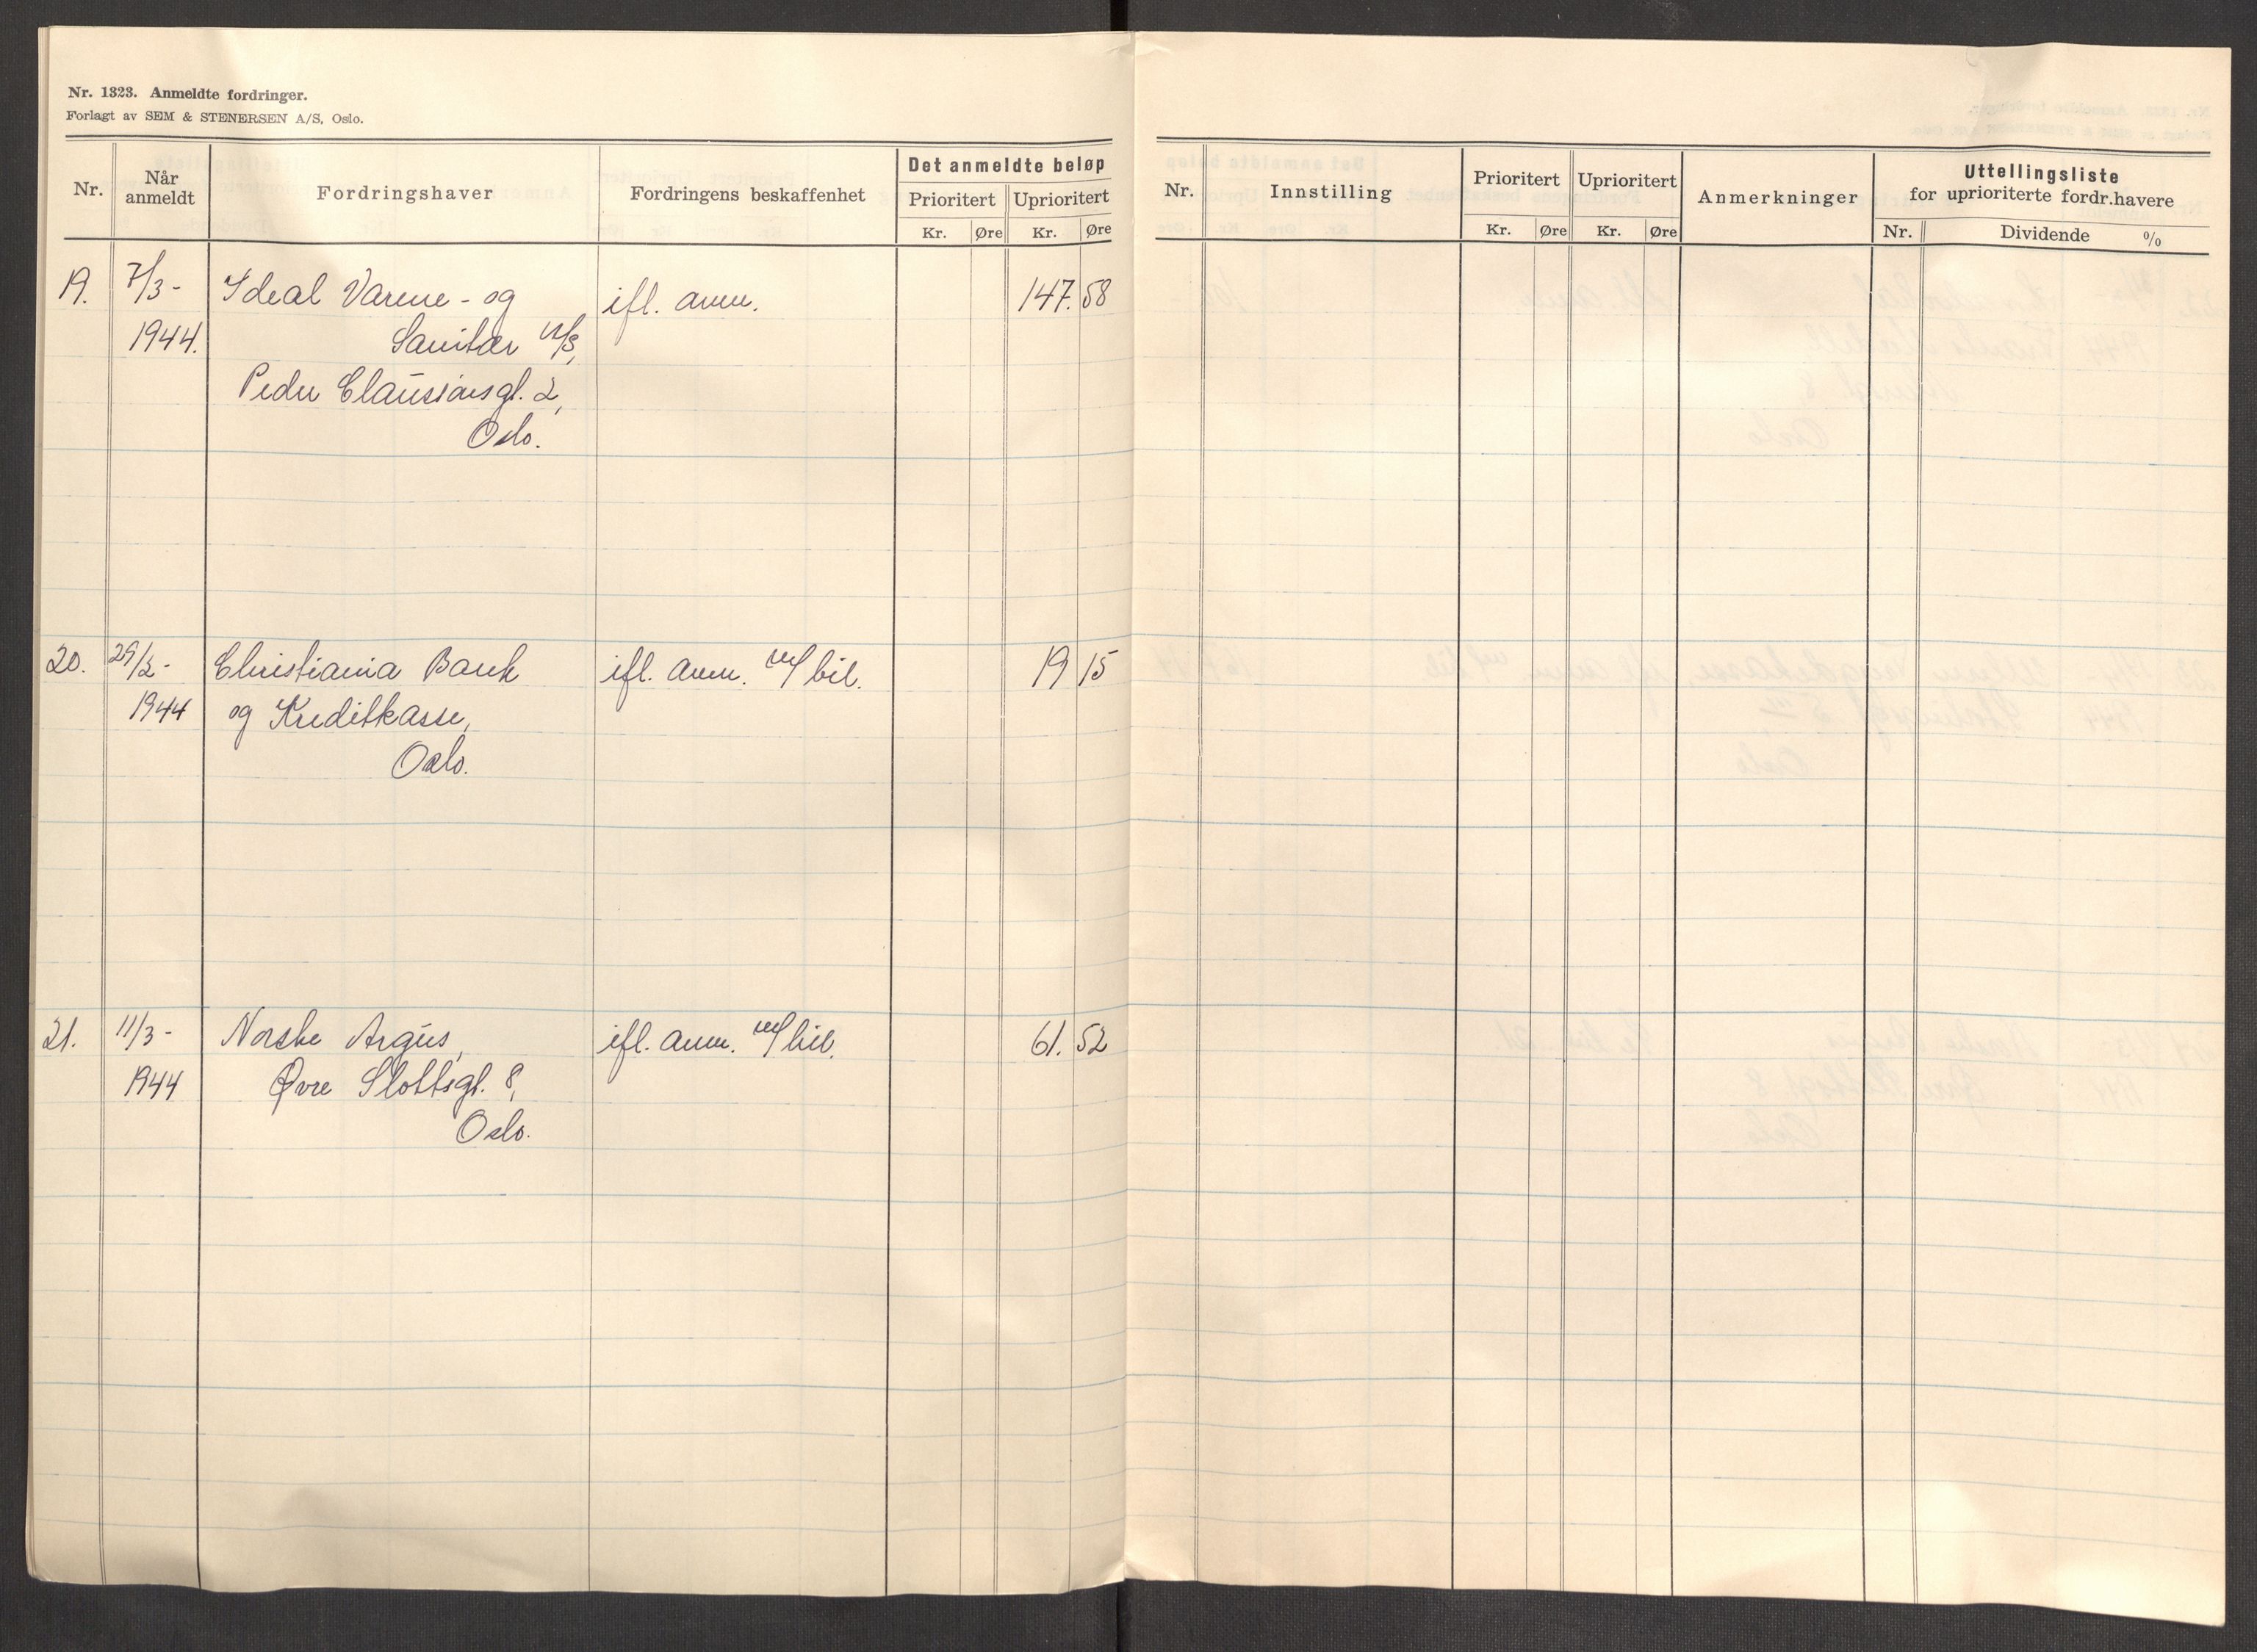 Nr. 1323. Anmeldte fordringer.
Forlagt av SEM & STENERSEN A/S, Oslo.
Nr. Når anmeldt Fordringshaver Fordringens beskaffenhet Det anmeldte beløp
Prioritert Uprioritert
Kr. Øre Kr. Øre
19. 7/3- Ideal Varme- og ifl. anm. 147. 58
1944. Sanitær A/S,
Peder Claussønsgt. 2,
Oslo.
20. 29/2- Christiania Bank ifl. anm. m/ bil. 19 15
1944 og Kreditkasse,
Oslo.
21. 11/3- Norske Argus, ifl. anm. m/ bil. 61. 52
1944 Øvre Slottsgt. 8,
Oslo.
Nr. Innstilling Prioritert Uprioritert Anmerkninger Uttellingsliste
for uprioriterte fordr.havere
Kr. Øre Kr. Øre Nr. Dividende %